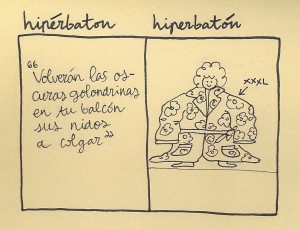 hipérbaton
hiperbatón
“Volverán las os-
curas golondrinas
en tu balcón
sus nidos
a colgar”
XXXL